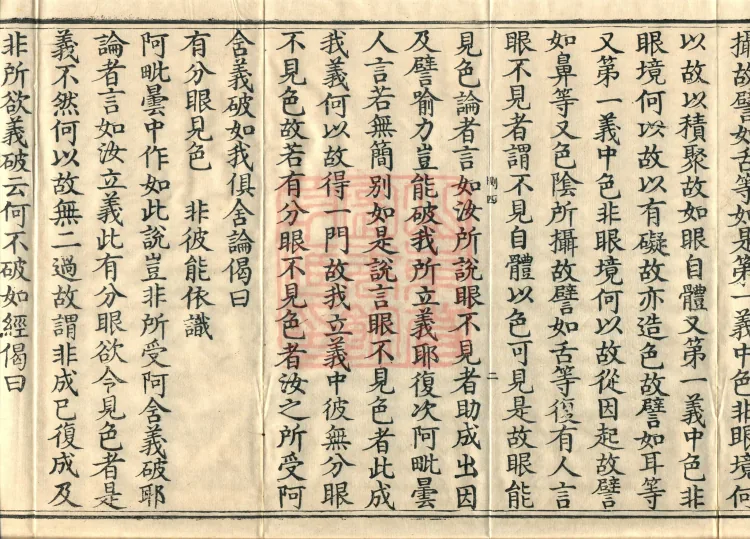 攝故譬如舌等如是第一義中色非眼境何
以故以積聚故如眼自體又第一義中色非
眼境何以故以有礙故亦造色故譬如耳等
又第一義中色非眼境何以故從因起故譬
如鼻等又色陰所攝故譬如舌等復有人言
眼不見者謂不見自體以色可見是故眼能
二
見色論者言如汝所說眼不見者助成出因
及譬喻力豈能破我所立義耶復次阿毗曇
人言若無簡別如是說言眼不見色者此成
我義何以故得一門故我立義中彼無分眼
不見色故若有分眼不見色者汝之所受阿
舍義破如我俱舍論偈曰
有分眼見色 非彼能依識
阿毗曇中作如此說豈非所受阿舍義破耶
論者言如汝立義此有分眼欲令見色者是
義不然何以故無二過故謂非成已復成及
非所欲義破云何不破如經偈曰